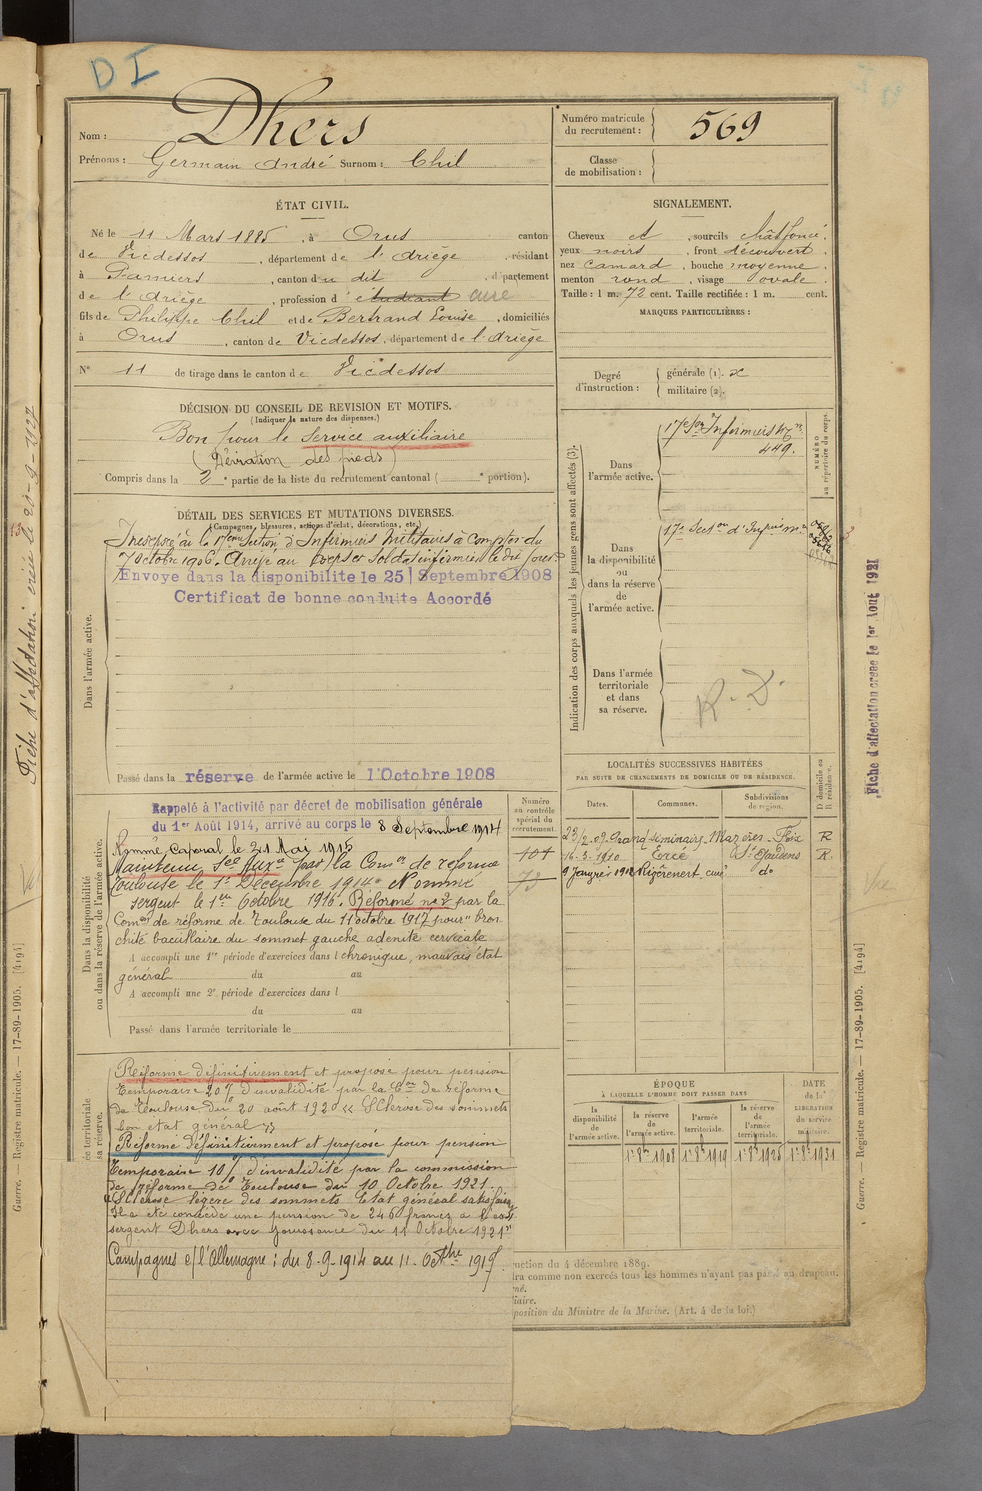 DI
Nom : Dhers
Prénoms : Germain André Surnom : Chil
Numéro matricule du recrutement : 569
Classe de mobilisation :
ÉTAT CIVIL.
Né le 11 Mars 1885, à Orus canton
de Vicdessos, département de l'Ariège, résidant
à Pamiers, canton du dit, département
de l'Ariège, profession d'étudiant curé
fils de Philippe Chil et de Bertrand Louise, domiciliés
à Orus, canton de Vicdessos, département de l'Ariège
N° 11 de tirage dans le canton de Vicdessos
SIGNALEMENT.
Cheveux et, sourcils chât foncé.
yeux noirs, front découvert
nez camard, bouche moyenne
menton rond, visage ovale.
Taille : 1 m. 72 cent. Taille rectifiée : 1 m. cent.
MARQUES PARTICULIÈRES :
Degré d'instruction : générale (1). x
militaire (2).
DÉCISION DU CONSEIL DE REVISION ET MOTIFS.
(Indiquer la nature des dispenses.)
Bon pour le service auxiliaire
(Déviation des pieds)
Compris dans la 2e partie de la liste du recrutement cantonal ( e portion).
DÉTAIL DES SERVICES ET MUTATIONS DIVERSES.
(Campagnes, blessures, actions d'éclat, décorations, etc.)
Dans l'armée active.
Incorporé à la 17ème Section d'Infirmiers Militaires à compter du
7 octobre 1906. Arrivé au corps et soldat infirmier le dit jour.
Envoyé dans la disponibilité le 25 Septembre 1908
Certificat de bonne conduite Accordé
Passé dans la réserve de l'armée active le 1 Octobre 1908
Indication des corps auxquels les jeunes gens sont affectés (3).
Dans l'armée active.
17e Son Infirmiers Mres
449.
Dans la disponibilité ou dans la réserve de l'armée active.
17e Section d'Infirmiers
Dans l'armée territoriale et dans sa réserve.
R. D.
NUMÉRO au répertoire du corps.
Dans la disponibilité ou dans la réserve de l'armée active.
Rappelé à l'activité par décret de mobilisation générale
du 1er Août 1914, arrivé au corps le 8 Septembre 1914
Nommé Caporal le 21 Mai 1916
Maintenu Sce Auxre par la Comon de réforme
Toulouse le 1er Décembre 1914. Nommé
sergent le 1er Octobre 1916. Réformé no 2 par la
Comon de réforme de Toulouse du 11 octobre 1917 pour " bron
chite bacillaire du sommet gauche adenite cervicale
A accompli une 1re période d'exercices dans l chronique, mauvais état
général du au
A accompli une 2e période d'exercices dans l
du au
Passé dans l'armée territoriale le
Numéro au contrôle spécial du recrutement.
101
73
LOCALITÉS SUCCESSIVES HABITÉES
PAR SUITE DE CHANGEMENTS DE DOMICILE OU DE RÉSIDENCE.
Dates. Communes. Subdivisions de région. D domicile ou R résidence.
23/2.09 Grand séminaire Mazères Foix R
16-3-1910 Ercé St Gaudens R.
9 Janvier 1912 curé do
ÉPOQUE
À LAQUELLE L'HOMME DOIT PASSER DANS
la disponibilité de l'armée active.
la réserve de l'armée active.
l'armée territoriale.
la réserve de l'armée territoriale.
DATE de la LIBÉRATION du service militaire.
1er 8bre 1908 1er 8bre 1919 1er 8bre 1925 1er 8bre 1931
Réformé définitivement et proposé pour pension
temporaire 20% d'invalidité par la Con de réforme
de Toulouse du 20 août 1920 « Sclérose des sommets
bon état général »
Réformé définitivement et proposé pour pension
temporaire 10% d'invalidité par la commission
de réforme de Toulouse du 10 Octobre 1921.
Sclérose légère des sommets Etat général satisfaisant
Il a été concédé une pension de 246 francs à l'ex
sergent Dhers avec jouissance du 11 Octobre 1921
Campagnes c/ l'Allemagne : du 8-9-1914 au 11. Octbre 1917.
uction du 4 décembre 1889.
dra comme non exercés tous les hommes n'ayant pas passé au drapeau.
né.
liaire.
position du Ministre de la Marine. (Art. 4 de la loi.)
e territoriale
sa réserve.
Fiche d'affectation créée le 1er Août 1921
Guerre. — Registre matricule. — 17-89-1905. [4194]
Fiche d'affectation créée le 20-9-1927
Guerre. — Registre matricule. — 17-89-1905. [4194]